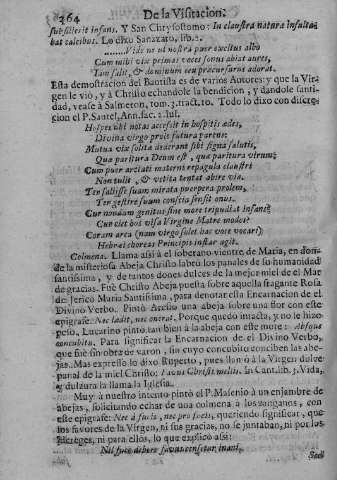 264 De la Visitacion.
subsilierit infans. Y San Chrysostomo: In claustra naturæ insulta-
bat calcibus. Lo dixo Sanazaro, lib. 2.
Vide ne ut nostra puer excitus alvo
Cum mihi vix primas voces sonus abiat aures,
Tam salit, & dominum ceu præcursurus adorat.
Esta demostracion del Bautista es de varios Autores: y que la Vir-
gen le viò, y à Christo echandole la bendicion, y dandole santi-
dad, vease à Salmeron, tom. 3. tract. 10. Todo lo dixo con discre-
cion el P. Sautel, Ann. sac. 2. Iul.
Hospes ubi notas accessit in hospitis ædes,
Divina virgo prolis futura parens:
Mutua vix solita dixerant sibi signa salutis,
Qua paritura Deum est, qua paritura virum;
Cum puer arctati materni repagula claustri
Non tulit, & vetita tentat abire via.
Ter saliisse suam mirata puerpera prolem,
Ter gestire suum conscia sensit onus.
Cur nondum genitus sine more tripudiat infans?
Cur ciet hos visa Virgine Matre modos?
Coram arca (nam virgo solet hac voce vocari)
Hebræ choreas Principis instar agit.
Colmena. Llama assi à el soberano vientre de Maria, en donde
la misteriosa Abeja Christo labrò los panales de su humanidad
santissima, y de tantos dones dulces de la mejor miel de el Mar
de gracias. Fuè Christo Abeja puesta sobre aquella fragante Rosa
de Jericò Maria Santissima, para denotar la Encarnacion de el
Divino Verbo. Pintò Acciliu una abeja sobre una flor con este
epigrafe: Nec lædit, nec onerat. Porque quedo intacta, y no le hizo
peso, Lucarino pintò tambien à la abeja con este mote: Absque
concubitu. Para significar la Encarnacion de el Divino Verbo,
que fuè sin obra de varon, sin cuyo concubito conciben las abe-
jas. Mas expresso lo dixo Ruperto, pues llamò à la Virgen dulce
panal de la miel Christo: Favus Christi mellis. In Cant. lib. 7. Vida,
y dulzura la llama la Iglesia.
Muy à nuestro intento pintò el P. Masenio à un enjambre de
abejas, solicitando echar de una colmena à los zanganos, con
este epigrafe: Nec à fucis, nec pro fucis, queriendo significar, que
los favores de la Virgen, ni sus gracias, no se juntaban, ni por los
hereges, ni para ellos, lo que explicò assi:
Nil fuco debere favus censetur inani,